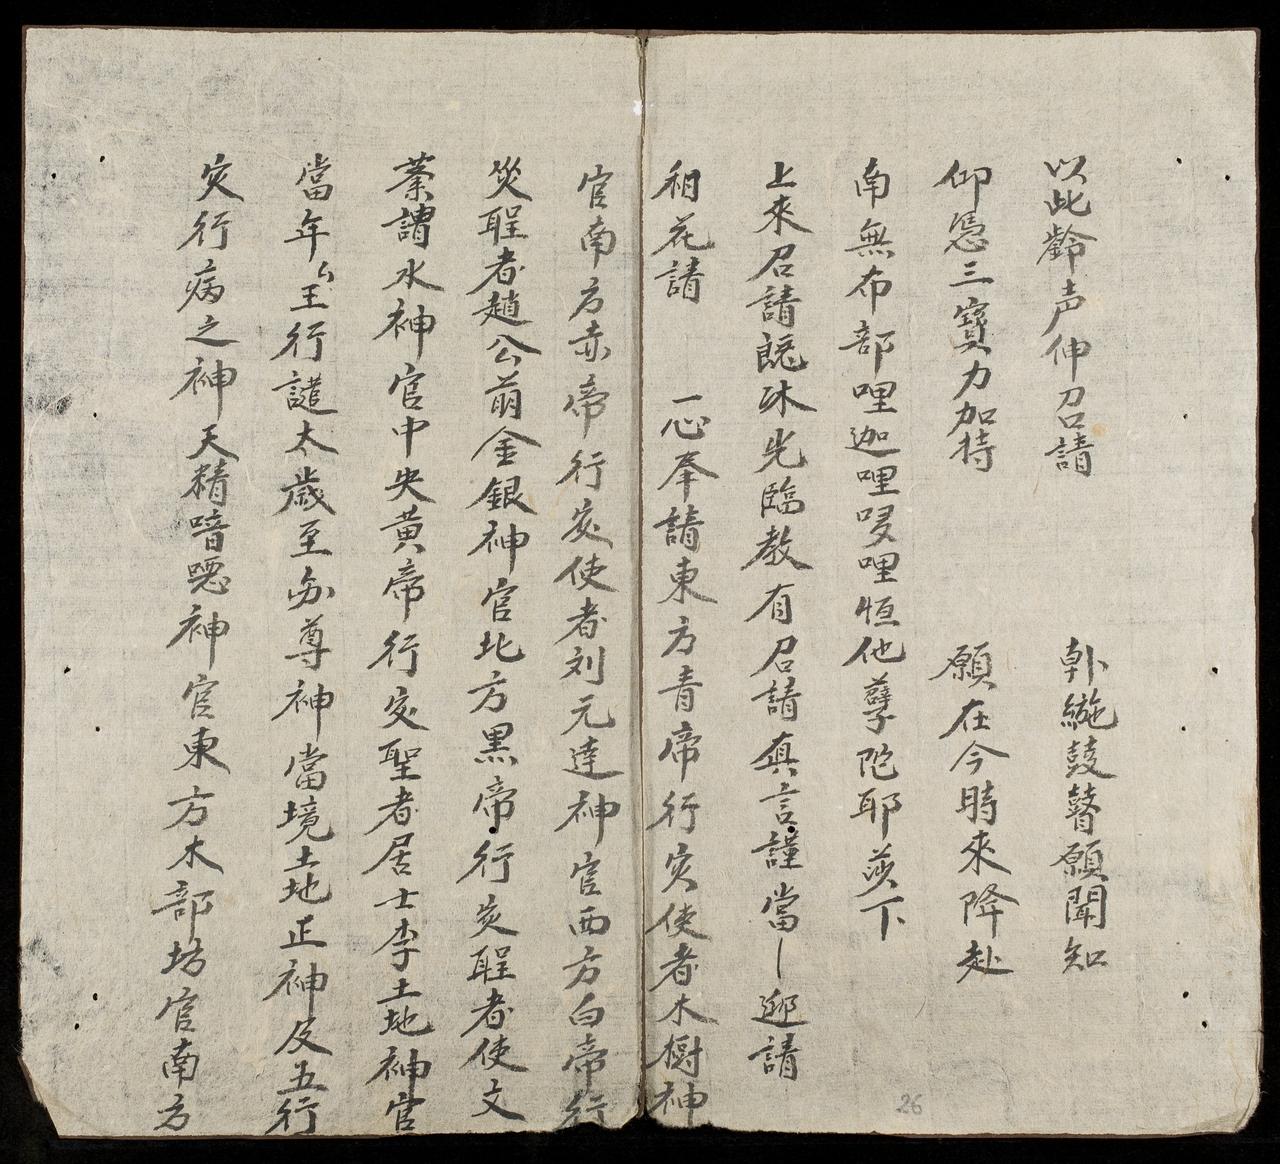 以此齡声伸召請 𠦝緪鼓瞽願聞知
仰憑三寶力加持 願在今時來降赴
南無布部哩迦哩哆哩怛他孽陀耶莎下
上來召請既沐先臨教有召請真言謹當丨迎請
相花請 一心奉請東方青帝行灾使者木樹神
官南方赤帝行灾使者刘元達神官西方白帝行
災聖者趙公萠金銀神官北方黒帝行灾聖者使文
業謂水神官中央黃帝行灾聖者居士李土地神官
當年么王行譴太歲至尊神當境土地正神及五行
灾行病之神天精喑噁神官東方木部坊官南方
26